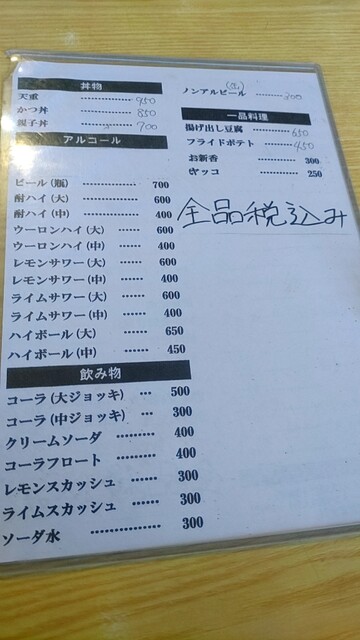 丼物
天重 ……………… 950
かつ丼 ……………… 850
親子丼 ……………… 700
アルコール
ビール(瓶) …………… 700
酎ハイ(大) …………… 600
酎ハイ(中) …………… 400
ウーロンハイ(大) …… 600
ウーロンハイ(中) …… 400
レモンサワー(大) …… 600
レモンサワー(中) …… 400
ライムサワー(大) …… 600
ライムサワー(中) …… 400
ハイボール(大) …… 650
ハイボール(中) …… 450
飲み物
コーラ(大ジョッキ) … 500
コーラ(中ジョッキ) … 300
クリームソーダ ……… 400
コーラフロート ……… 400
レモンスカッシュ …… 300
ライムスカッシュ …… 300
ソーダ水 …………… 300
ノンアルビール ……… 300
一品料理
揚げ出し豆腐 ……… 650
フライドポテト …… 450
お新香 …………… 300
ヤッコ …………… 250
全品税込み